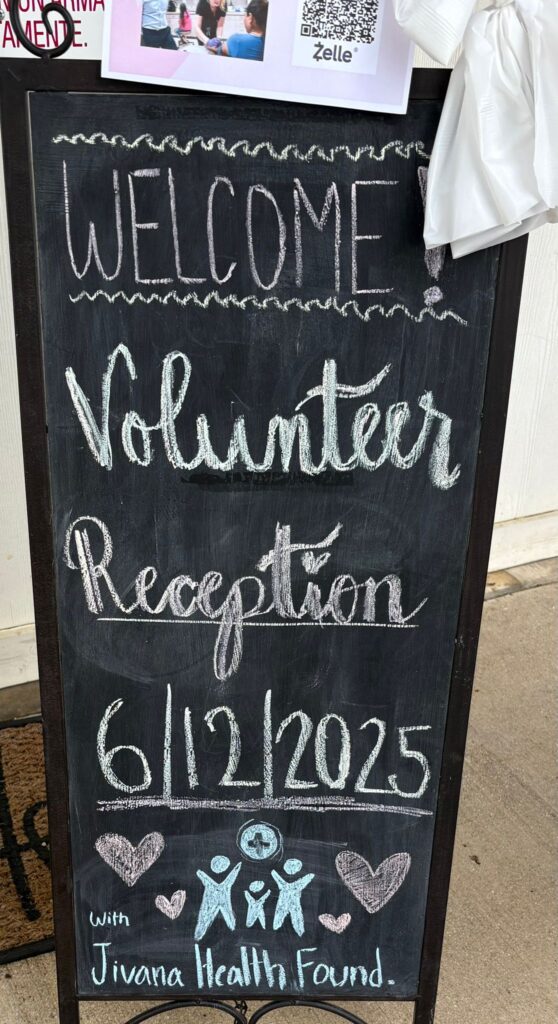 TAMENTE.
Zelle®
WELCOME!
Volunteer
Reception
6/12/2025
With
Jivana Health Found.